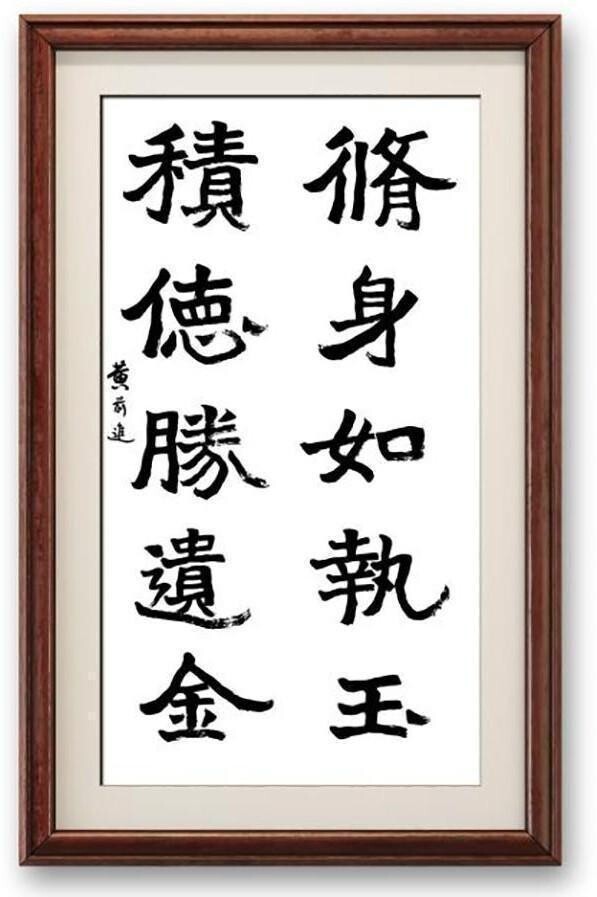 脩身如執玉
積德勝遺金
黄前進